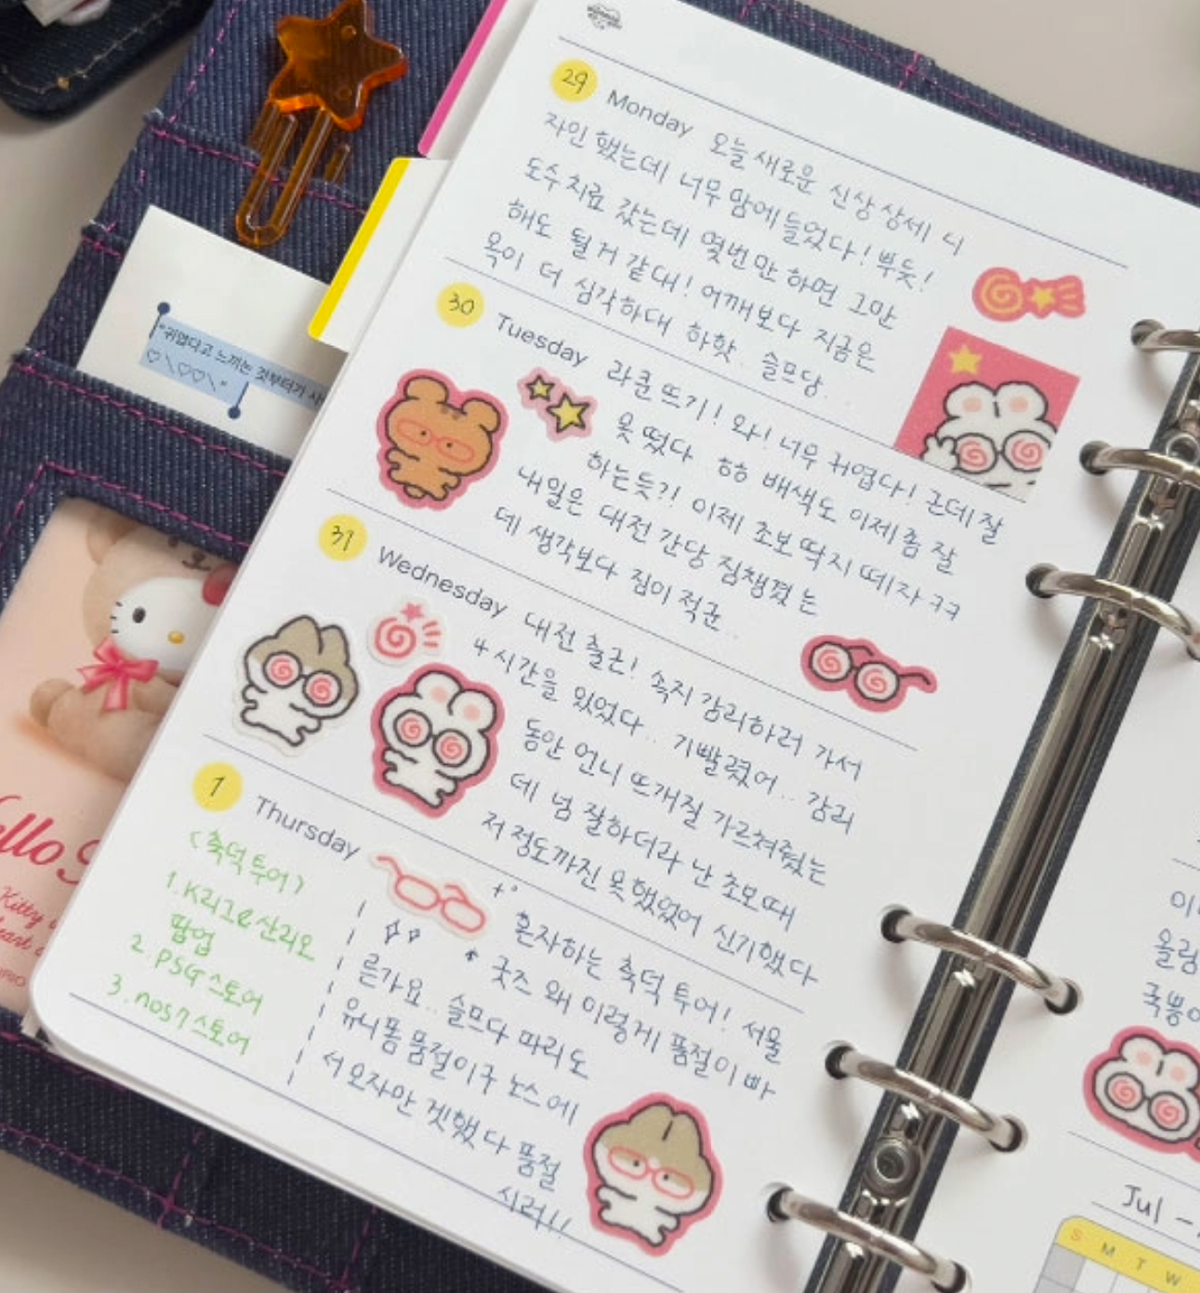 29 Monday 오늘 새로운 신상 상세 디
자인 했는데 너무 맘에 들었다! 뿌듯!
도수치료 갔는데 몇번만 하면 그만
해도 될거 같대! 어깨보다 지금은
목이 더 심각하대 하핫. 슬프당..
30 Tuesday 라쿤 뜨기! 와! 너무 귀엽다! 근데 잘
못 떴다 ㅎㅎ 배색도 이제 좀 잘
하는듯?! 이제 초보 딱지 떼자 ㅋㅋ
내일은 대전 간당 짐챙겼는
데 생각보다 짐이 적군..
31 Wednesday 대전 출근! 속지 감리하러 가서
4시간을 있었다.. 기빨렸어.. 감리
동안 언니 뜨개질 가르쳐줬는
데 넘 잘하더라 난 초보때
저 정도까진 못했었어 신기했다
1 Thursday
<축덕 투어>
1. K리그X산리오
팝업
2. PSG 스토어
3. nos7 스토어
혼자하는 축덕 투어! 서울
굿즈 왜 이렇게 품절이 빠
른가요.. 슬프다 파리도
유니폼 품절이구 노스에
서 모자만 겟했다 품절
시러!!
"귀엽다고 느끼는 것부터가 사
♡\♡♡\"
Hello
Kitty
이
올림
국뽕
Jul -
S M T W